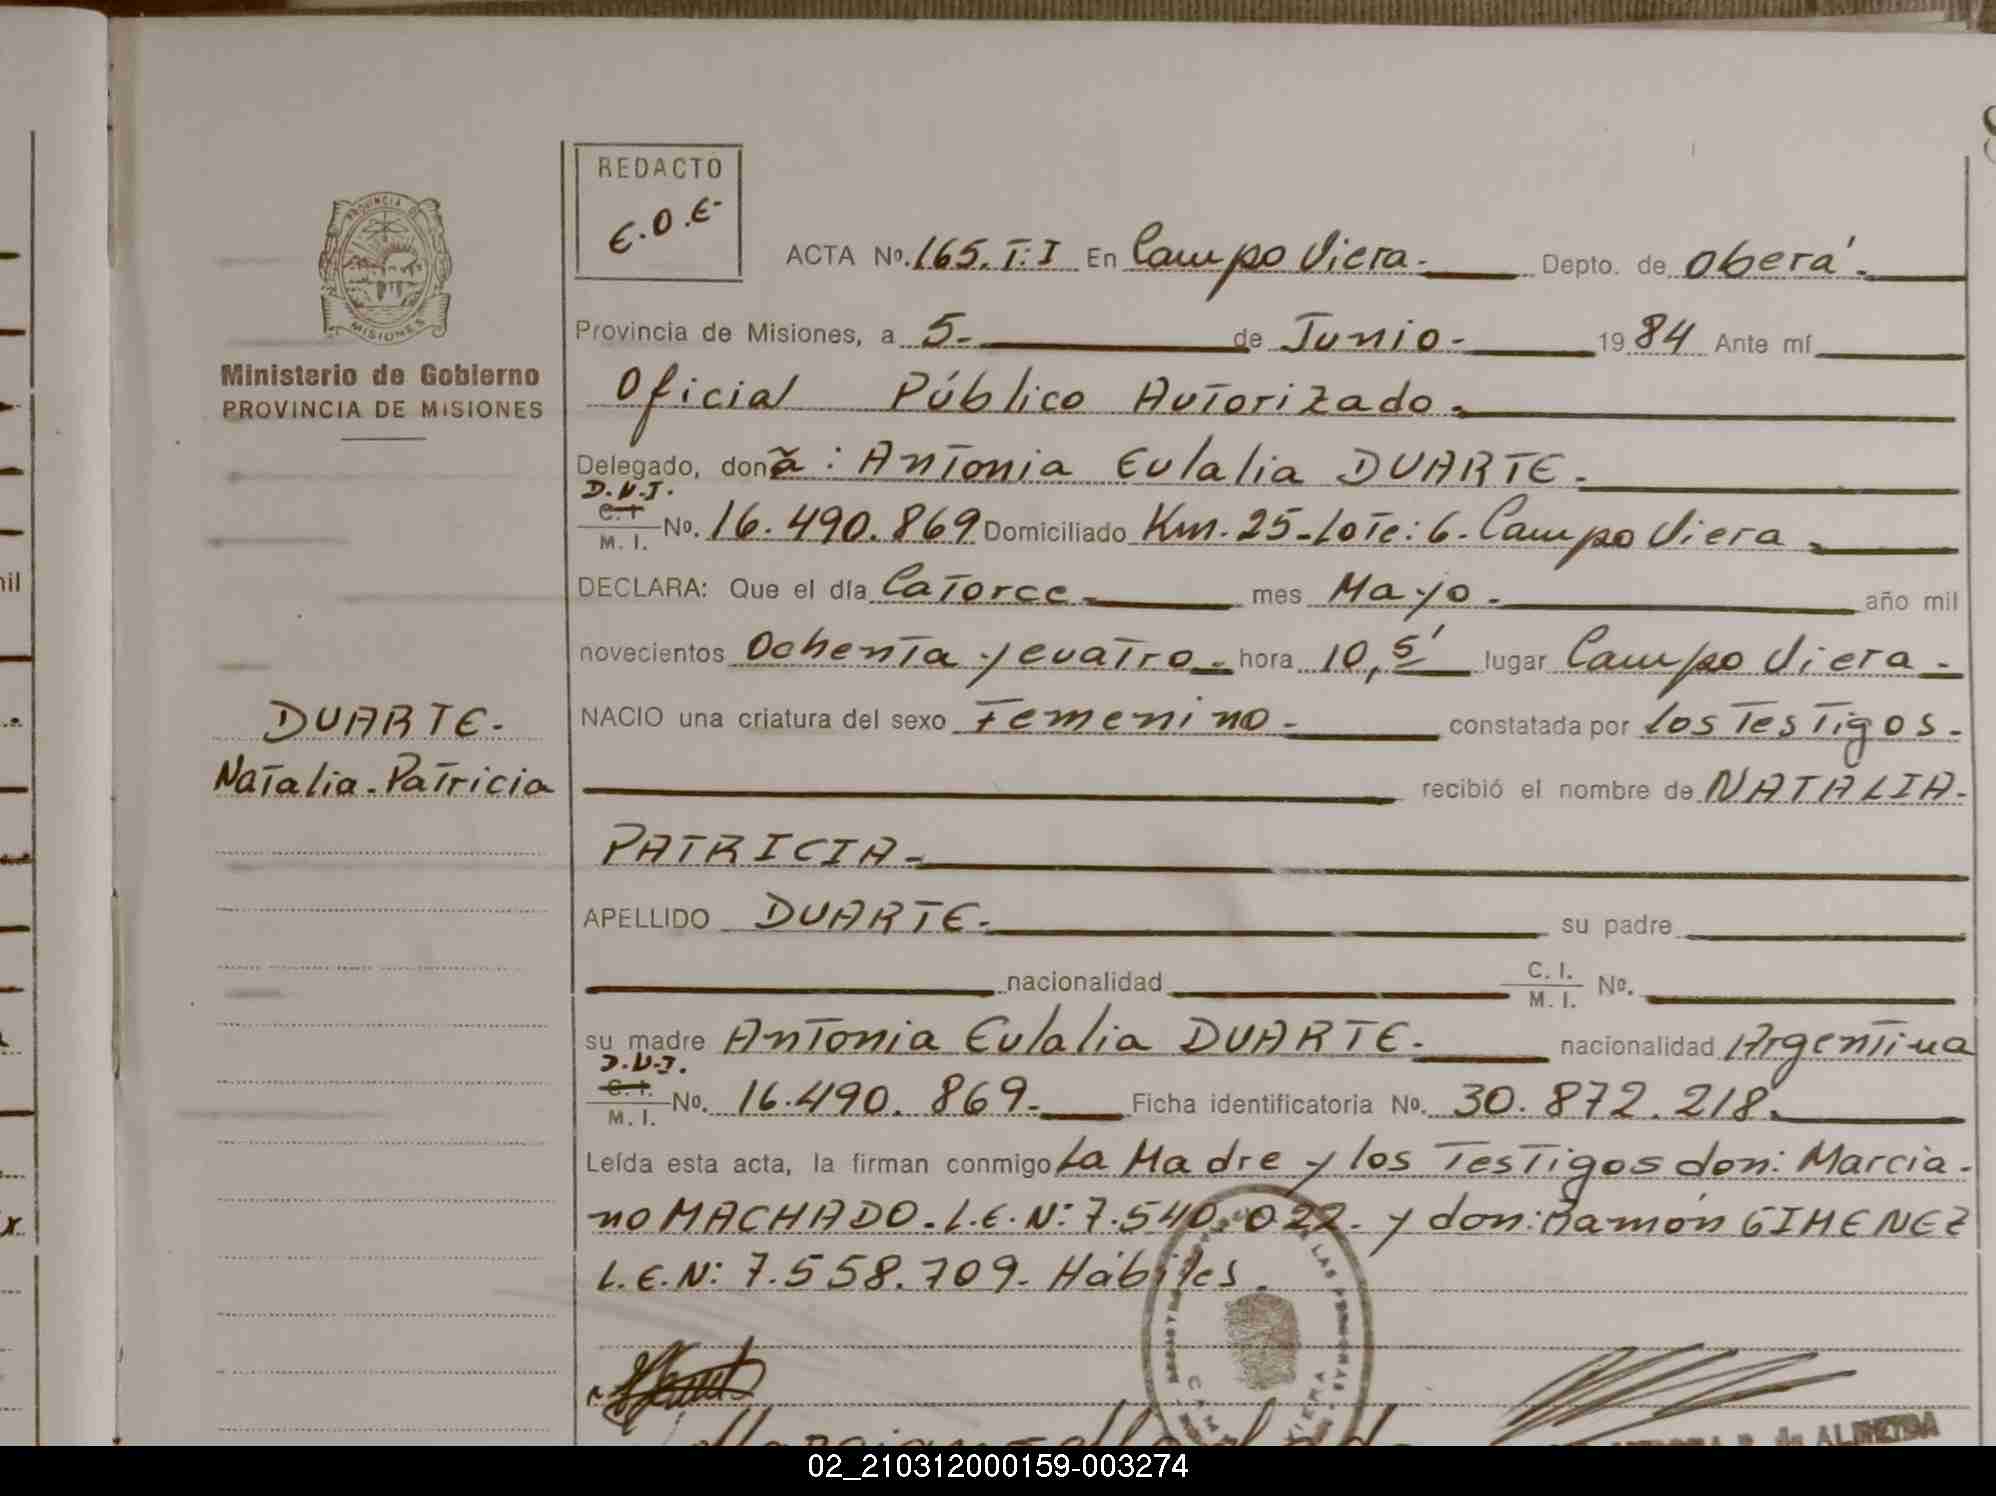 REDACTO
E.O.E-
PROVINCIA DE
MISIONES
Ministerio de Gobierno
PROVINCIA DE MISIONES
ACTA Nº. 165. T: I En Campo Viera.- Depto. de Oberá.-
Provincia de Misiones, a 5.- de Junio.- 1984 Ante mí
Oficial Público Autorizado.-
Delegado, doña : Antonia Eulalia DUARTE.-
D.N.I.
C.I.
M. I. Nº. 16.490.869 Domiciliado Km. 25-Lote: 6. Campo Viera.-
DECLARA: Que el día Catorce.- mes Mayo.- año mil
novecientos Ochenta y cuatro.- hora 10,5' lugar Campo Viera.-
DUARTE.-
NACIO una criatura del sexo Femenino.- constatada por los Testigos.-
Natalia-Patricia
recibió el nombre de NATALIA-
PATRICIA-
APELLIDO DUARTE.- su padre
nacionalidad C. I. M. I. Nº.
su madre Antonia Eulalia DUARTE.- nacionalidad Argentina
D.N.I.
C.I.
M. I. Nº. 16.490.869.- Ficha identificatoria Nº. 30.872.218.
Leída esta acta, la firman conmigo La Madre y los Testigos don: Marcia-
no MACHADO. L.E.N: 7.540.022. y don: Ramón GIMENEZ
L.E.N: 7.558.709. Hábiles.
de ALMEYDA
02_210312000159-003274